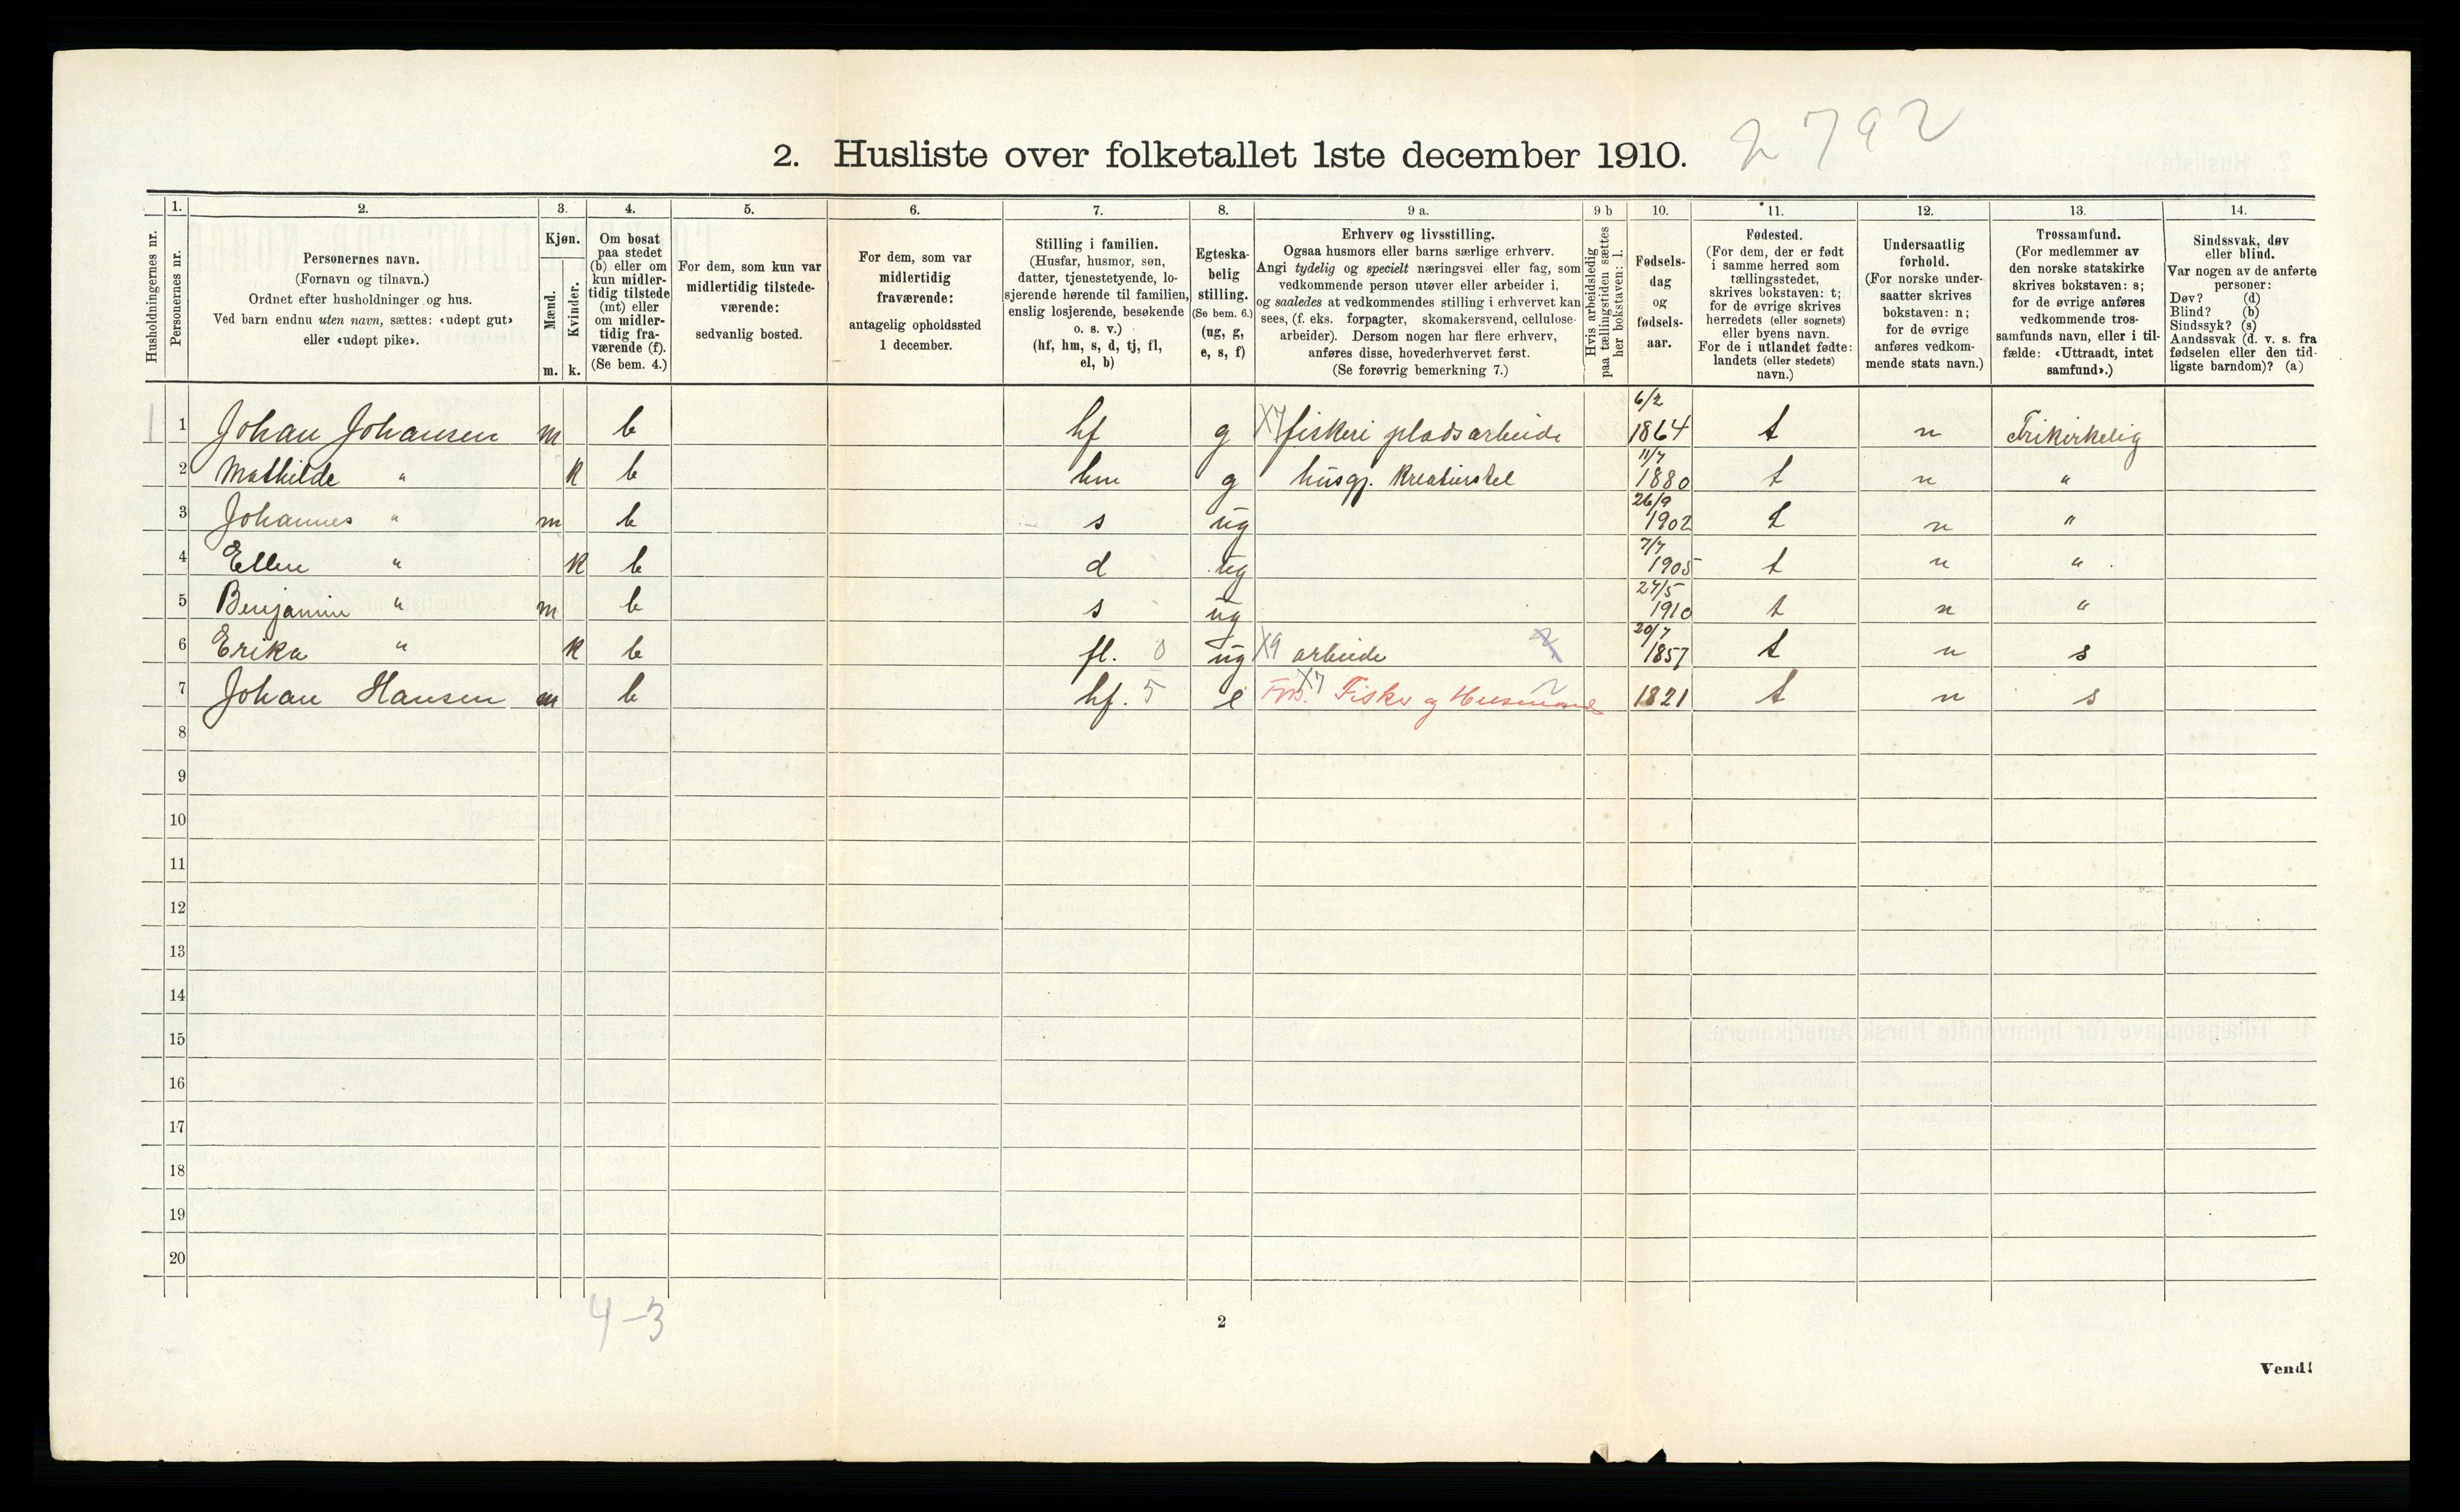 2. Husliste over folketallet 1ste december 1910. 2792
Husholdningernes nr.
1.
Personernes nr.
2.
Personernes navn.
(Fornavn og tilnavn.)
Ordnet efter husholdninger og hus.
Ved barn endnu uten navn, sættes: «udøpt gut»
eller «udøpt pike».
3.
Kjøn.
Mænd.
Kvinder.
m. k.
4.
Om bosat
paa stedet
(b) eller om
kun midler-
tidig tilstede
(mt) eller
om midler-
tidig fra-
værende (f).
(Se bem. 4.)
5.
For dem, som kun var
midlertidig tilstede-
værende:
sedvanlig bosted.
6.
For dem, som var
midlertidig
fraværende:
antagelig opholdssted
1 december.
7.
Stilling i familien.
(Husfar, husmor, søn,
datter, tjenestetyende, lo-
sjerende hørende til familien,
enslig losjerende, besøkende
o. s. v.)
(hf, hm, s, d, tj, fl,
el, b)
8.
Egteska-
belig
stilling.
(Se bem. 6.)
(ug, g,
e, s, f)
9 a.
Erhverv og livsstilling.
Ogsaa husmors eller barns særlige erhverv.
Angi tydelig og specielt næringsvei eller fag, som
vedkommende person utøver eller arbeider i,
og saaledes at vedkommendes stilling i erhvervet kan
sees, (f. eks. forpagter, skomakersvend, cellulose-
arbeider). Dersom nogen har flere erhverv,
anføres disse, hovederhvervet først.
(Se forøvrig bemerkning 7.)
9 b
Hvis arbeidsledig
paa tællingstiden sættes
her bokstaven: l.
10.
Fødsels-
dag
og
fødsels-
aar.
11.
Fødested.
(For dem, der er født
i samme herred som
tællingsstedet,
skrives bokstaven: t;
for de øvrige skrives
herredets (eller sognets)
eller byens navn.
For de i utlandet fødte:
landets (eller stedets)
navn.)
12.
Undersaatlig
forhold.
(For norske under-
saatter skrives
bokstaven: n;
for de øvrige
anføres vedkom-
mende stats navn.)
13.
Trossamfund.
(For medlemmer av
den norske statskirke
skrives bokstaven: s;
for de øvrige anføres
vedkommende tros-
samfunds navn, eller i til-
fælde: «Uttraadt, intet
samfund».)
14.
Sindssvak, døv
eller blind.
Var nogen av de anførte
personer:
Døv? (d)
Blind? (b)
Sindssyk? (s)
Aandssvak (d. v. s. fra
fødselen eller den tid-
ligste barndom)? (a)
1 1 Johan Johansen m b hf g X7 fiskeri pladsarbeide 6/2 1864 t n Frikirkelig
2 Mathilde " k b hm g husgj. Kreaturstel 11/7 1880 t n "
3 Johannes " m b s ug 26/9 1902 t n "
4 Ellen " k b d ug 7/7 1905 t n "
5 Benjamin " m b s ug 27/5 1910 t n "
6 Erika " k b fl. 0 ug X9 arbeide 20/7 1857 t n s
7 Johan Hansen m b hf. 5 e X7 Fisker og Husmand 1821 t n s
8
9
10
11
12
13
14
15
16
17
18
19
20
4-3
2
Vend!